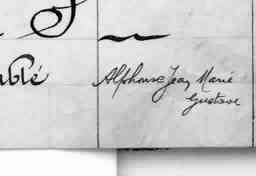 Alphonse Jean Marie
Gustave